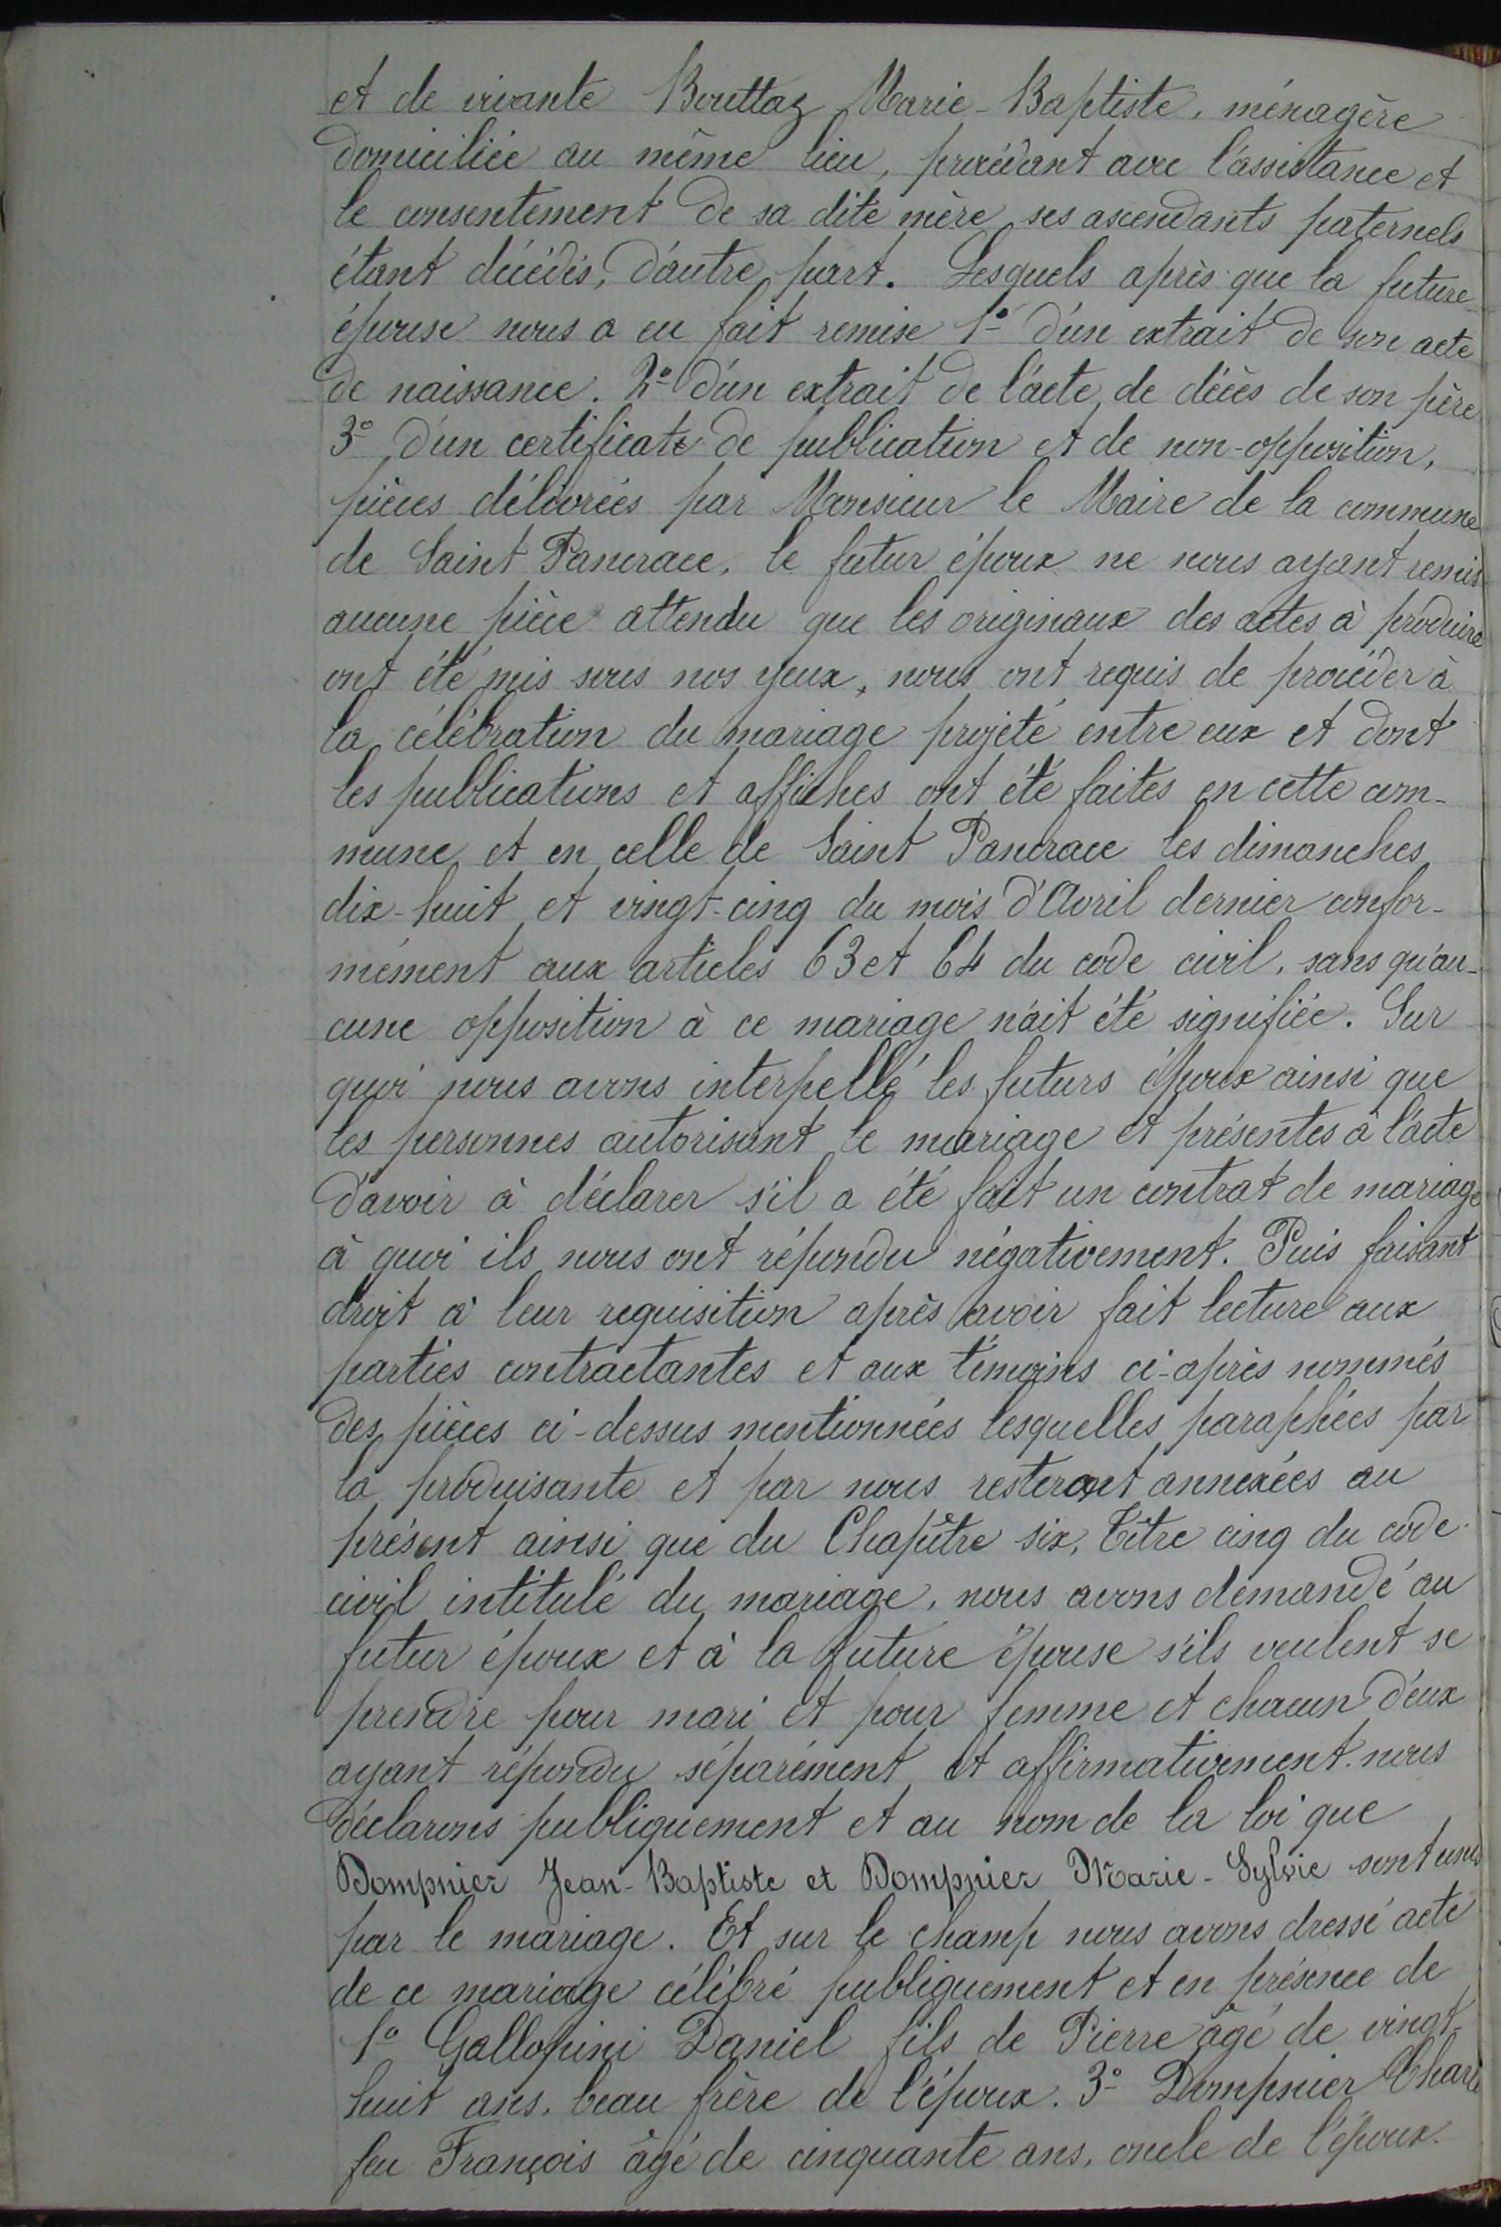 et de vivante Bouttaz Marie-Baptiste, ménagère
domiciliée au même lieu, procédant avec l'assistance et
le consentement de sa dite mère, ses ascendants paternels
étant décédés, d'autre part. Lesquels après que la future
épouse nous a eu fait remise 1° d'un extrait de son acte
de naissance. 2° d'un extrait de l'acte de décès de son père
3° d'un certificat de publication et de non-opposition,
pièces délivrées par Monsieur le Maire de la commune
de Saint Pancrace, le futur époux ne nous ayant remis
aucune pièce attendu que les originaux des actes à produire
ont été mis sous nos yeux, nous ont requis de procéder à
la célébration du mariage projeté entre eux et dont
les publications et affiches ont été faites en cette com-
mune, et en celle de Saint Pancrace les dimanches
dix-huit et vingt-cinq du mois d'Avril dernier confor-
mément aux articles 63 et 64 du code civil, sans qu'au-
cune opposition à ce mariage n'ait été signifiée. Sur
quoi nous avons interpellé les futurs époux ainsi que
les personnes autorisant le mariage et présentes à l'acte
d'avoir à déclarer s'il a été fait un contrat de mariage
à quoi ils nous ont répondu négativement. Puis faisant
droit à leur requisition après avoir fait lecture aux
parties contractantes et aux témoins ci-après nommés
des pièces ci-dessus mentionnées lesquelles paraphées par
la produisante et par nous resteront annexées au
présent ainsi que du Chapître six, Titre cinq du code
civil intitulé du mariage, nous avons demandé au
futur époux et à la future épouse s'ils veulent se
prendre pour mari et pour femme et chacun d'eux
ayant répondu séparément et affirmativement nous
déclarons publiquement et au nom de la loi que
Dompnier Jean-Baptiste et Dompnier Marie-Sylvie sont unis
par le mariage. Et sur le champ nous avons dressé acte
de ce mariage célébré publiquement et en présence de
1° Gallopini Daniel fils de Pierre âgé de vingt-
huit ans, beau frère de l'époux. 3° Dompnier Charle
feu François âgé de cinquante ans, oncle de l'époux.